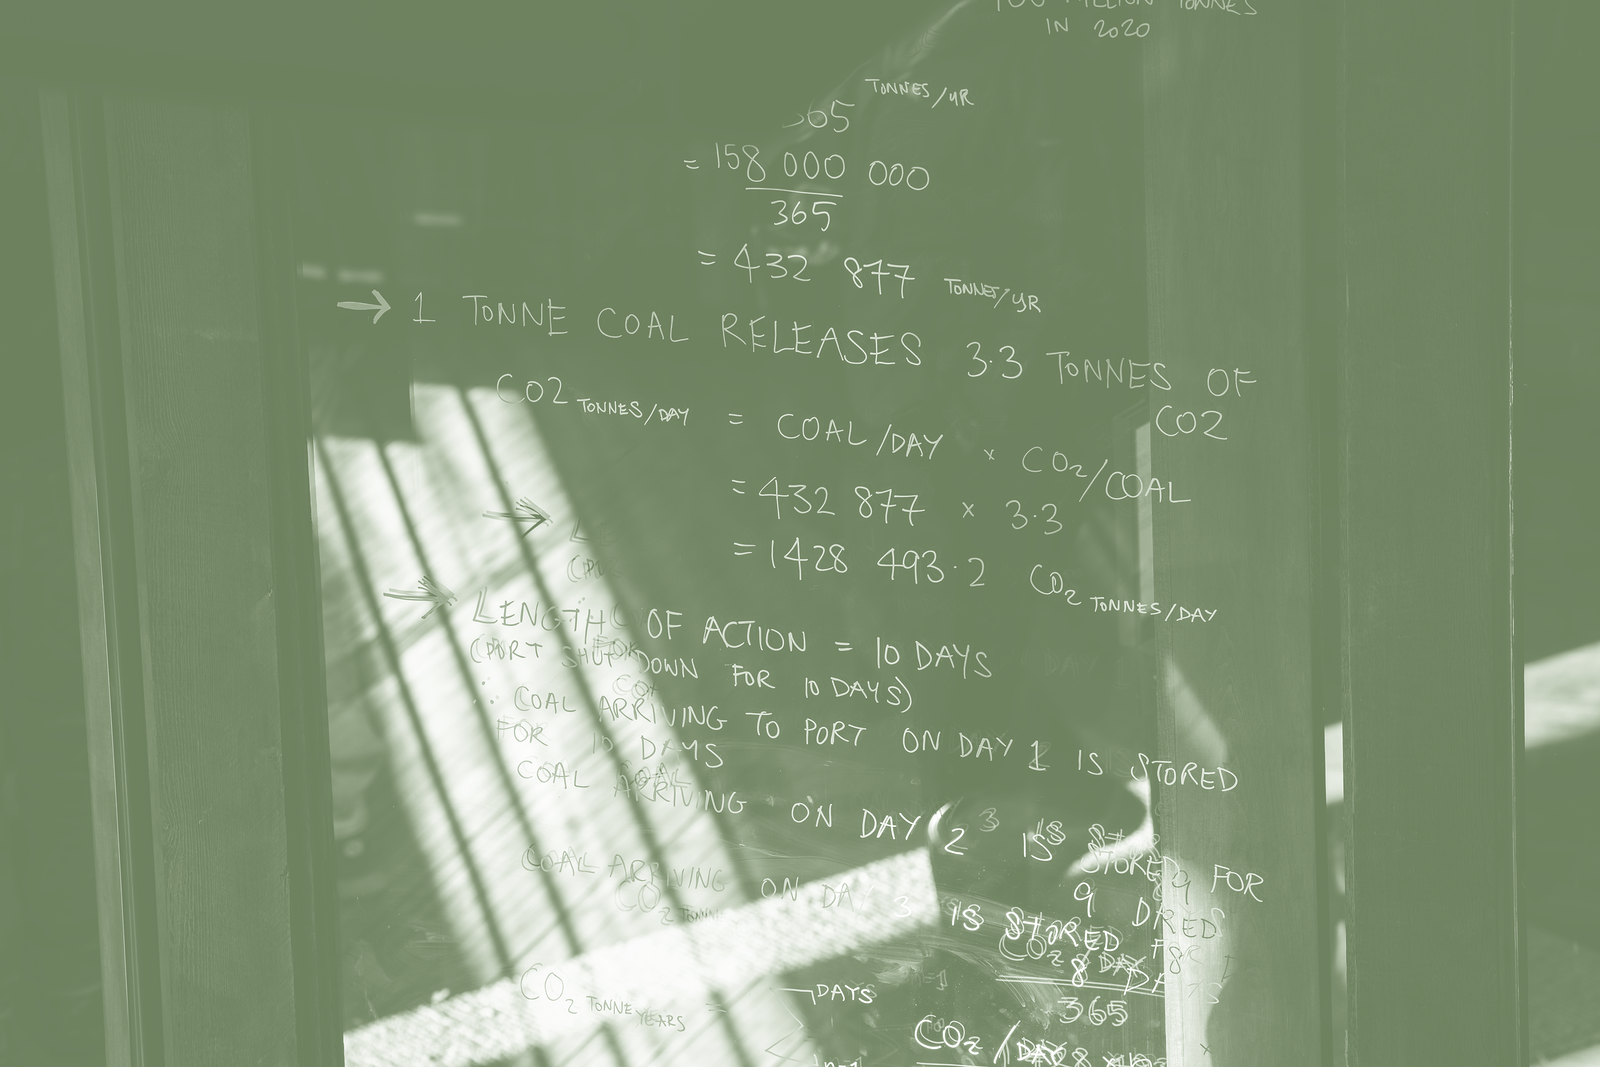 MILLION TONNES
IN 2020
365 TONNES/YR
= 158 000 000
365
= 432 877 TONNES/YR
→ 1 TONNE COAL RELEASES 3.3 TONNES OF
CO2
CO2 TONNES/DAY = COAL/DAY × CO2/COAL
= 432 877 × 3.3
= 1428 493.2 CO2 TONNES/DAY
→ LENGTH OF ACTION = 10 DAYS
(PORT SHUT DOWN FOR 10 DAYS)
∴ COAL ARRIVING TO PORT ON DAY 1 IS STORED
FOR 10 DAYS
COAL ARRIVING ON DAY 2 IS
STORED FOR
9
COAL ARRIVING ON DAY 3 IS STORED
8
CO2 TONNE YEARS =
DAYS
n=1
365
CO2/DAY